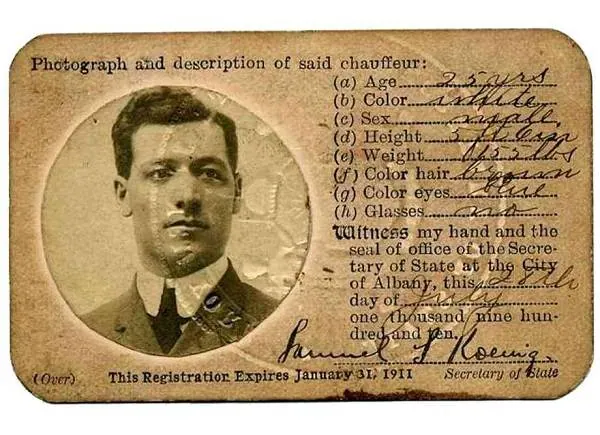 Photograph and description of said chauffeur:
(a) Age 25 yrs
(b) Color white
(c) Sex male
(d) Height 5 ft 6 in
(e) Weight 155 lbs
(f) Color hair brown
(g) Color eyes blue
(h) Glasses no
Witness my hand and the
seal of office of the Secre-
tary of State at the City
of Albany, this 28th
day of July
one thousand nine hun-
dred and ten.
Samuel S Koenig
(Over) This Registration Expires January 31, 1911 Secretary of State